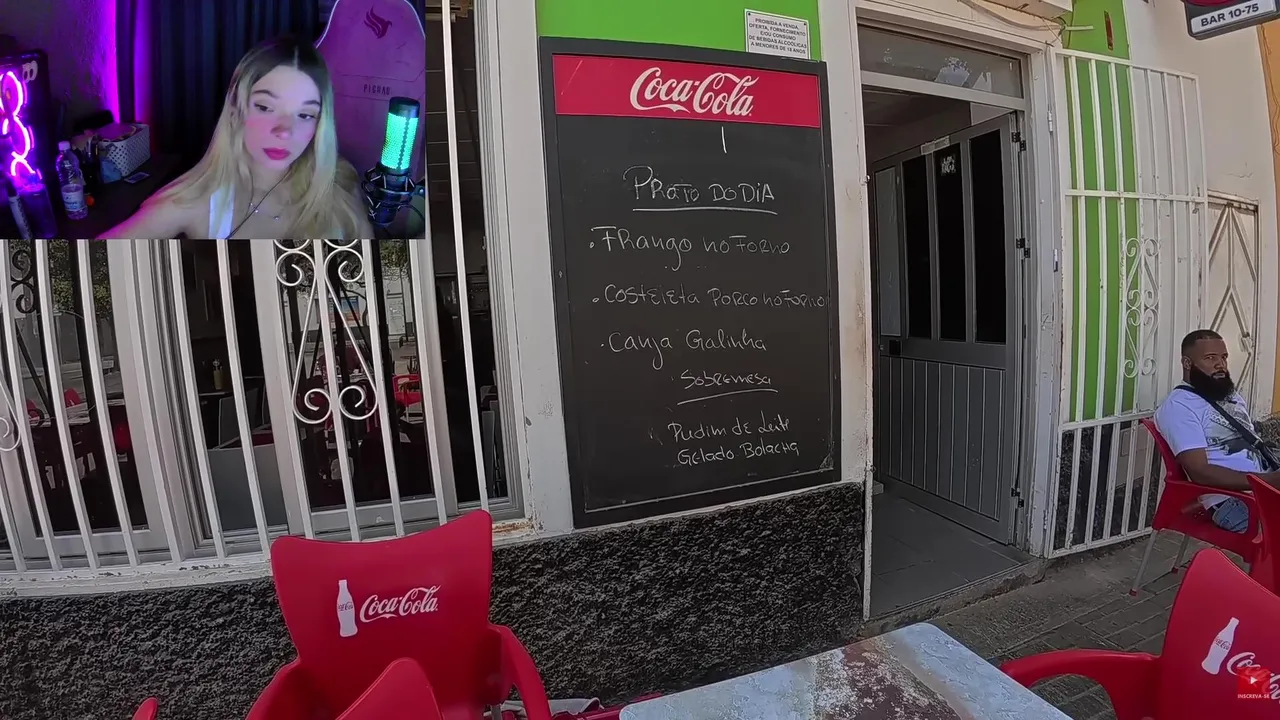 PICHAU
BAR 10-75
PROIBIDA A VENDA,
OFERTA, FORNECIMENTO
E/OU CONSUMO
DE BEBIDAS ALCOÓLICAS
A MENORES DE 18 ANOS
Coca-Cola
PRATO DO DIA
. FRango no Forno
. Costeleta Porco no Forno
. Canja Galinha
. Sobremesa
Pudim de Leite
Gelado Bolacha
Coca-Cola
INSCREVA-SE